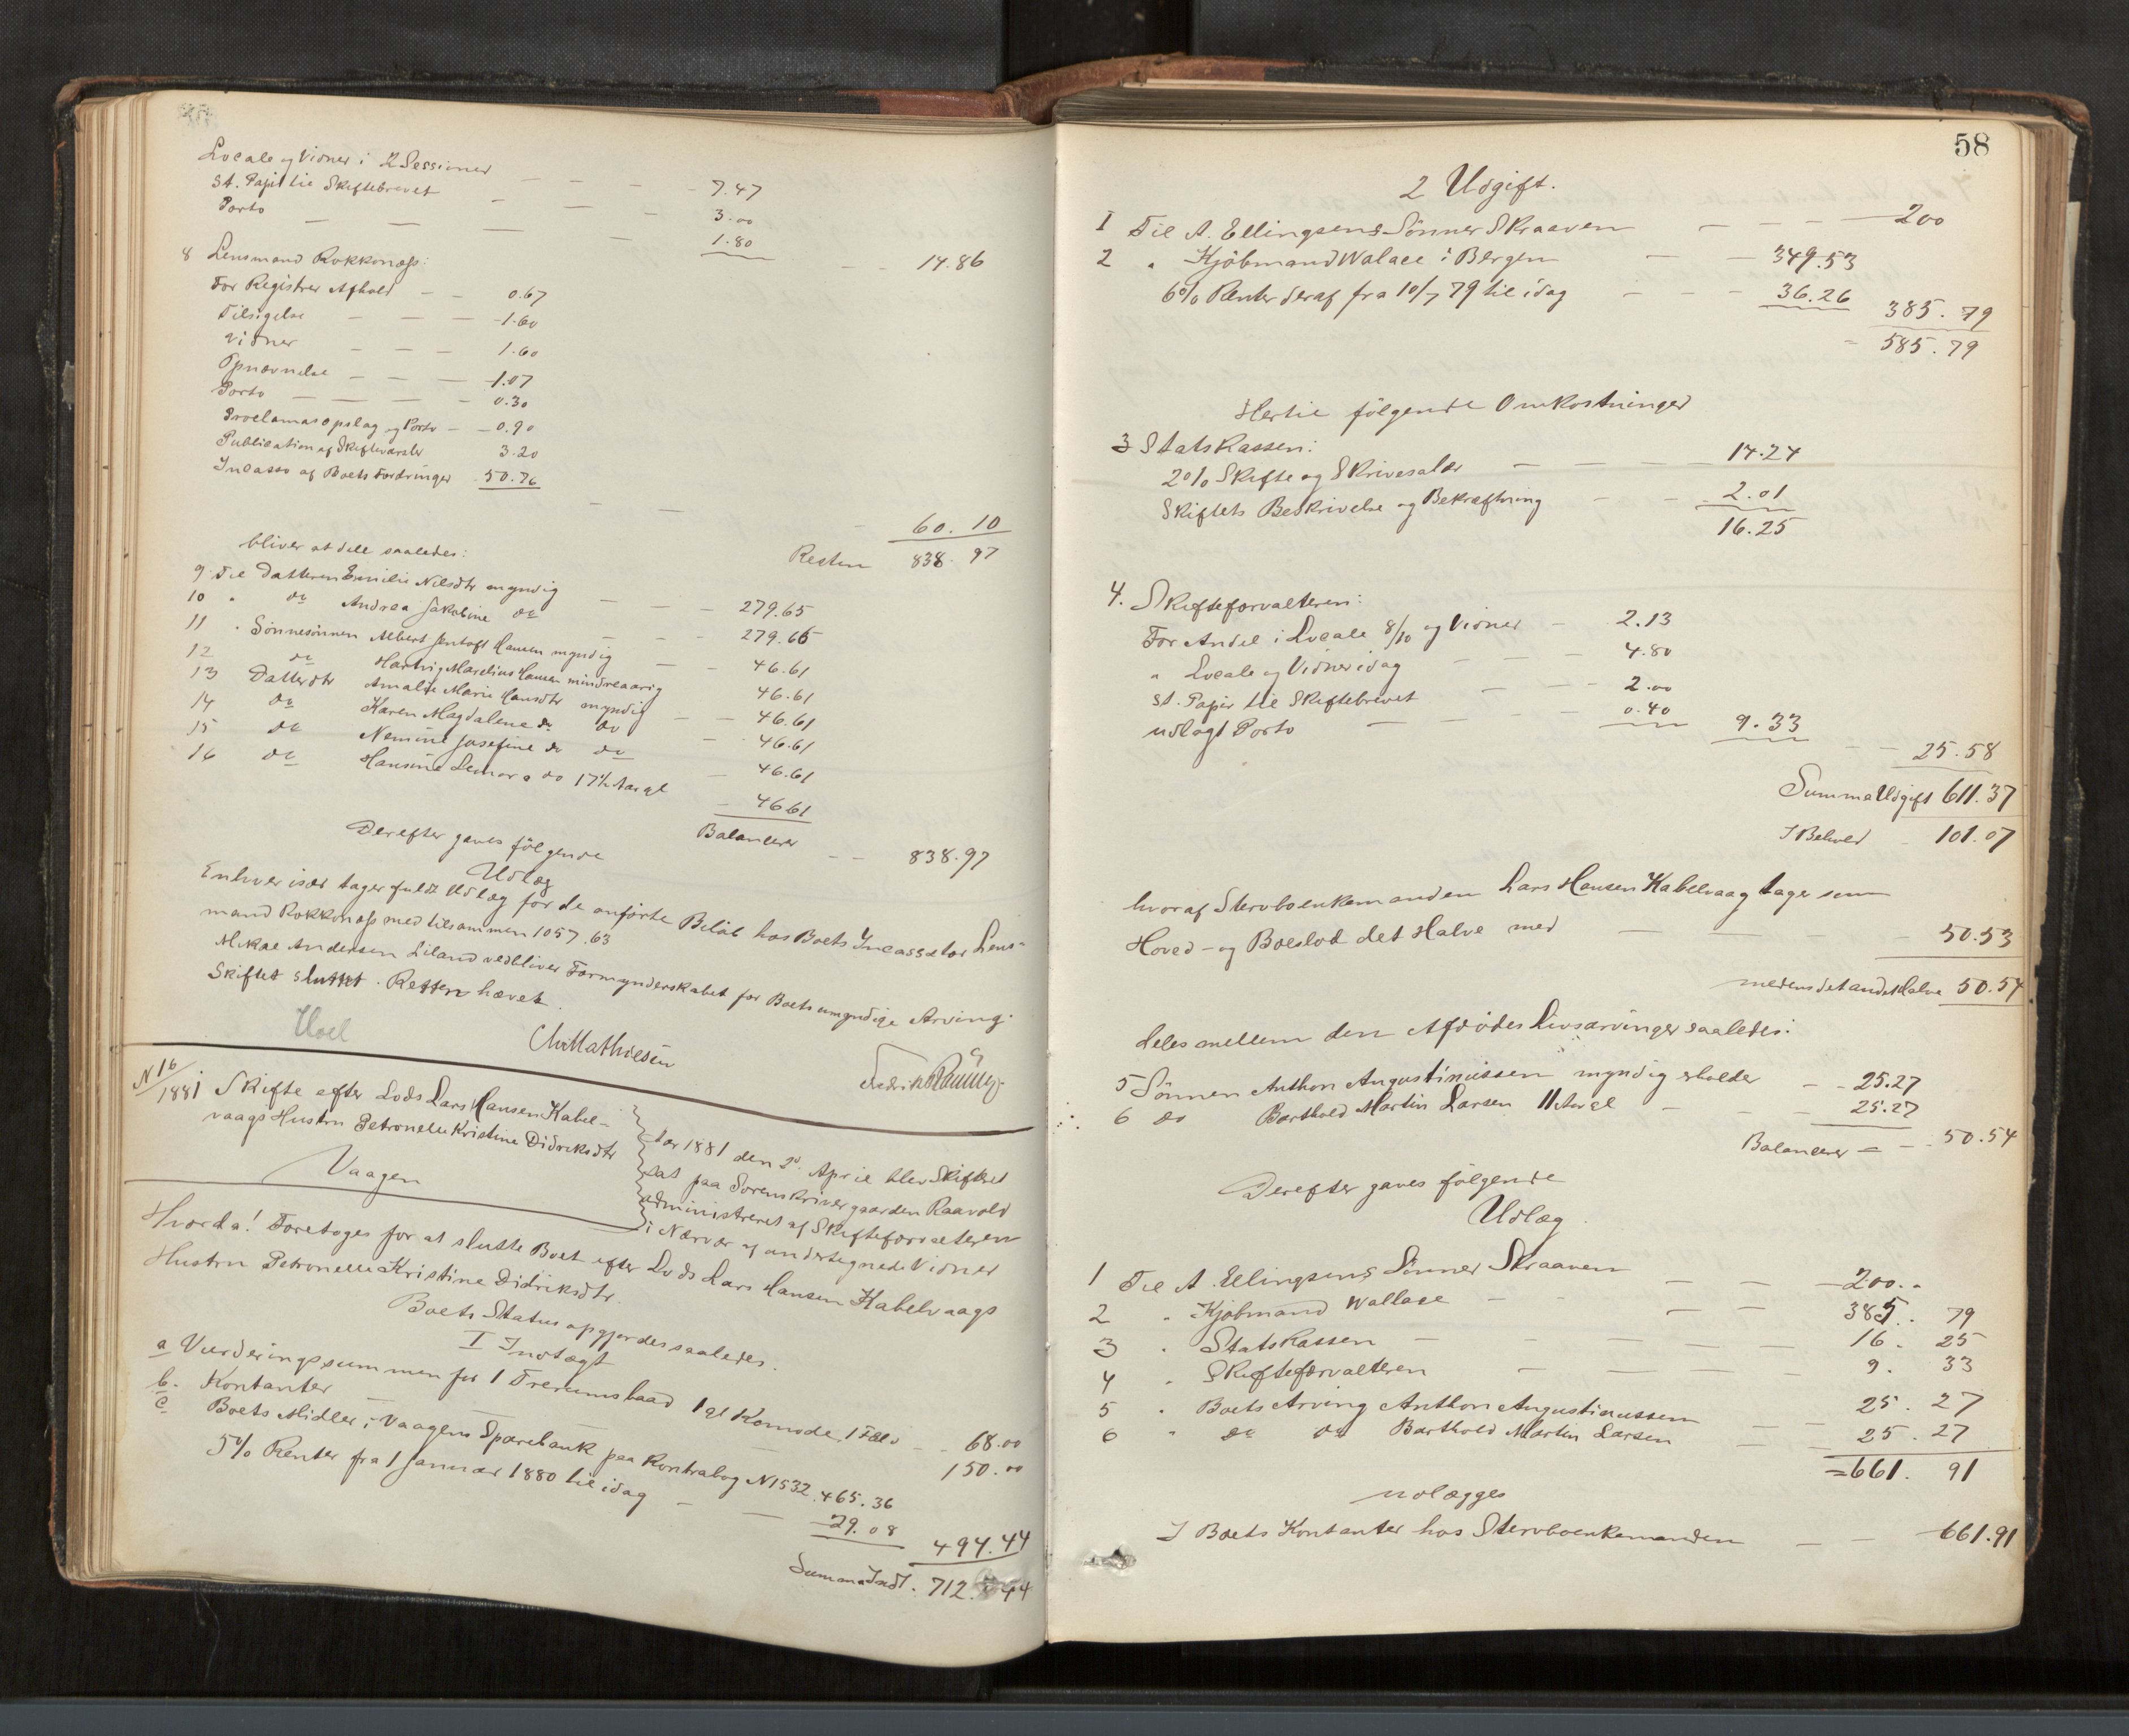 Locale og Vidner i 2 Sessioner — — — 7.47
St. Papir til Skiftebrevet — — — 3.00
Porto — — — — 1.80
— — 14.86
8 Lensmand Rokkonæss:
For Registrer Afhold — — 0.67
Tilsigelse — — — 1.60
Vidner — — — 1.60
Opnævnelse — — — 1.07
Porto — — — — 0.30
Proclamas opslag og Porto — 0.90
Publication af Skiftevarsler 3.20
Incasso af Boets Fordringer 50.76
— — — 60.10
bliver at dele saaledes: Resten 838.97
9 Til Datteren Emilie Nilsdtr myndig — — — 279.65
10 " do Andrea Jakobine do — — — 279.66
11 " Sønnesønnen Albert Jentoft Hansen myndig — — 46.61
12 do Hartvig Marelius Hansen mindreaarig 46.61
13 Datterdtr Amalie Marie Hansdtr myndig — — 46.61
14 do Karen Magdalene do do — 46.61
15 do Nemine Josefine do do — 46.61
16 do Hansine Lenora do 17½ Aar gl — 46.61
Balancerer — — 838.97
Derefter gaves følgende
Udlæg
Enhver især tager fuldt Udlæg for de anførte Beløb hos Boets Incassator Lens-
mand Rokkonæss med tilsammen 1057.63
Mikal Andersen Liland vedbliver Formynderskabet for Boets umyndige Arving.
Skiftet sluttet. Retten hævet.
Chr Mathiesen
N 16/1881 Skifte efter Lods Lars Hansen Kabel-
vaags Hustru Petronelle Kristine Didriksdtr
Vaagen
Aar 1881 den 2. April blev Skifteret
sat paa Sorenskrivergaarden Raavold
administreret af Skifteforvalteren
i Nærvær af undertegnede Vidner
Hvorda! Foretoges for at slutte Boet efter Lods Lars Hansen Kabelvaags
Hustru Petronelle Kristine Didriksdtr.
Boets Status opgjordes saaledes.
I Indtægt
a Vurderingssummen for 1 Trerumsbaad 1 gl Komode, — 68.00
b. Kontanter — — — 150.00
c Boets Midler i Vaagens Sparebank paa Kontrabog N 1532. 465.36
5% Renter fra 1 Januar 1880 til idag — — 29.08 494.44
Summa Indt. 712.44
58
2 Udgift.
1 Til A. Ellingsens Sønner Skraaven — — — 200
2 " Kjøbmand Walace i Bergen — — 349.53
6% Renter deraf fra 10/7 79 til idag — — — 36.26 385.79
= 585.79
Hertil følgende Omkostninger
3 Statskassen:
2% Skifte og Skrivesalær — — — 14.24
Skiftets Beskrivelse og Bekræftning — — 2.01
16.25
4. Skifteforvalteren:
For Andel i Locale 8/10 og Vidner — 2.13
" Locale og Vidner idag — — — 4.80
St. Papir til Skiftebrevet — — — 2.00
udlagt Porto — — — — 0.40 9.33
— — 25.58
Summa Udgift 611.37
I Behold — 101.07
hvoraf Stervboenkemanden Lars Hansen Kabelvaag tager som
Hoved- og Boeslod det Halve med — — — 50.53
medens det andet Halve 50.54
deles mellem den Afdødes Livsarvinger saaledes:
5 Sønnen Anthon Augustinussen myndig erholder — — 25.27
6 do Barthold Martin Larsen 11 Aar gl — — — 25.27
Balancerer = — 50.54
Derefter gaves følgende
Udlæg.
1 Til A. Ellingsens Sønner Skraaven — — — 200..
2 " Kjøbmand Wallace — — — — 385.79
3 " Statskassen — — — — — 16.25
4 " Skifteforvalteren — — — — 9.33
5 " Boets Arving Anthon Augustinussen — — 25.27
6 " do do Barthold Martin Larsen — — 25.27
= 661.91
udlægges
I Boets Kontanter hos Stervboenkemanden — — 661.91